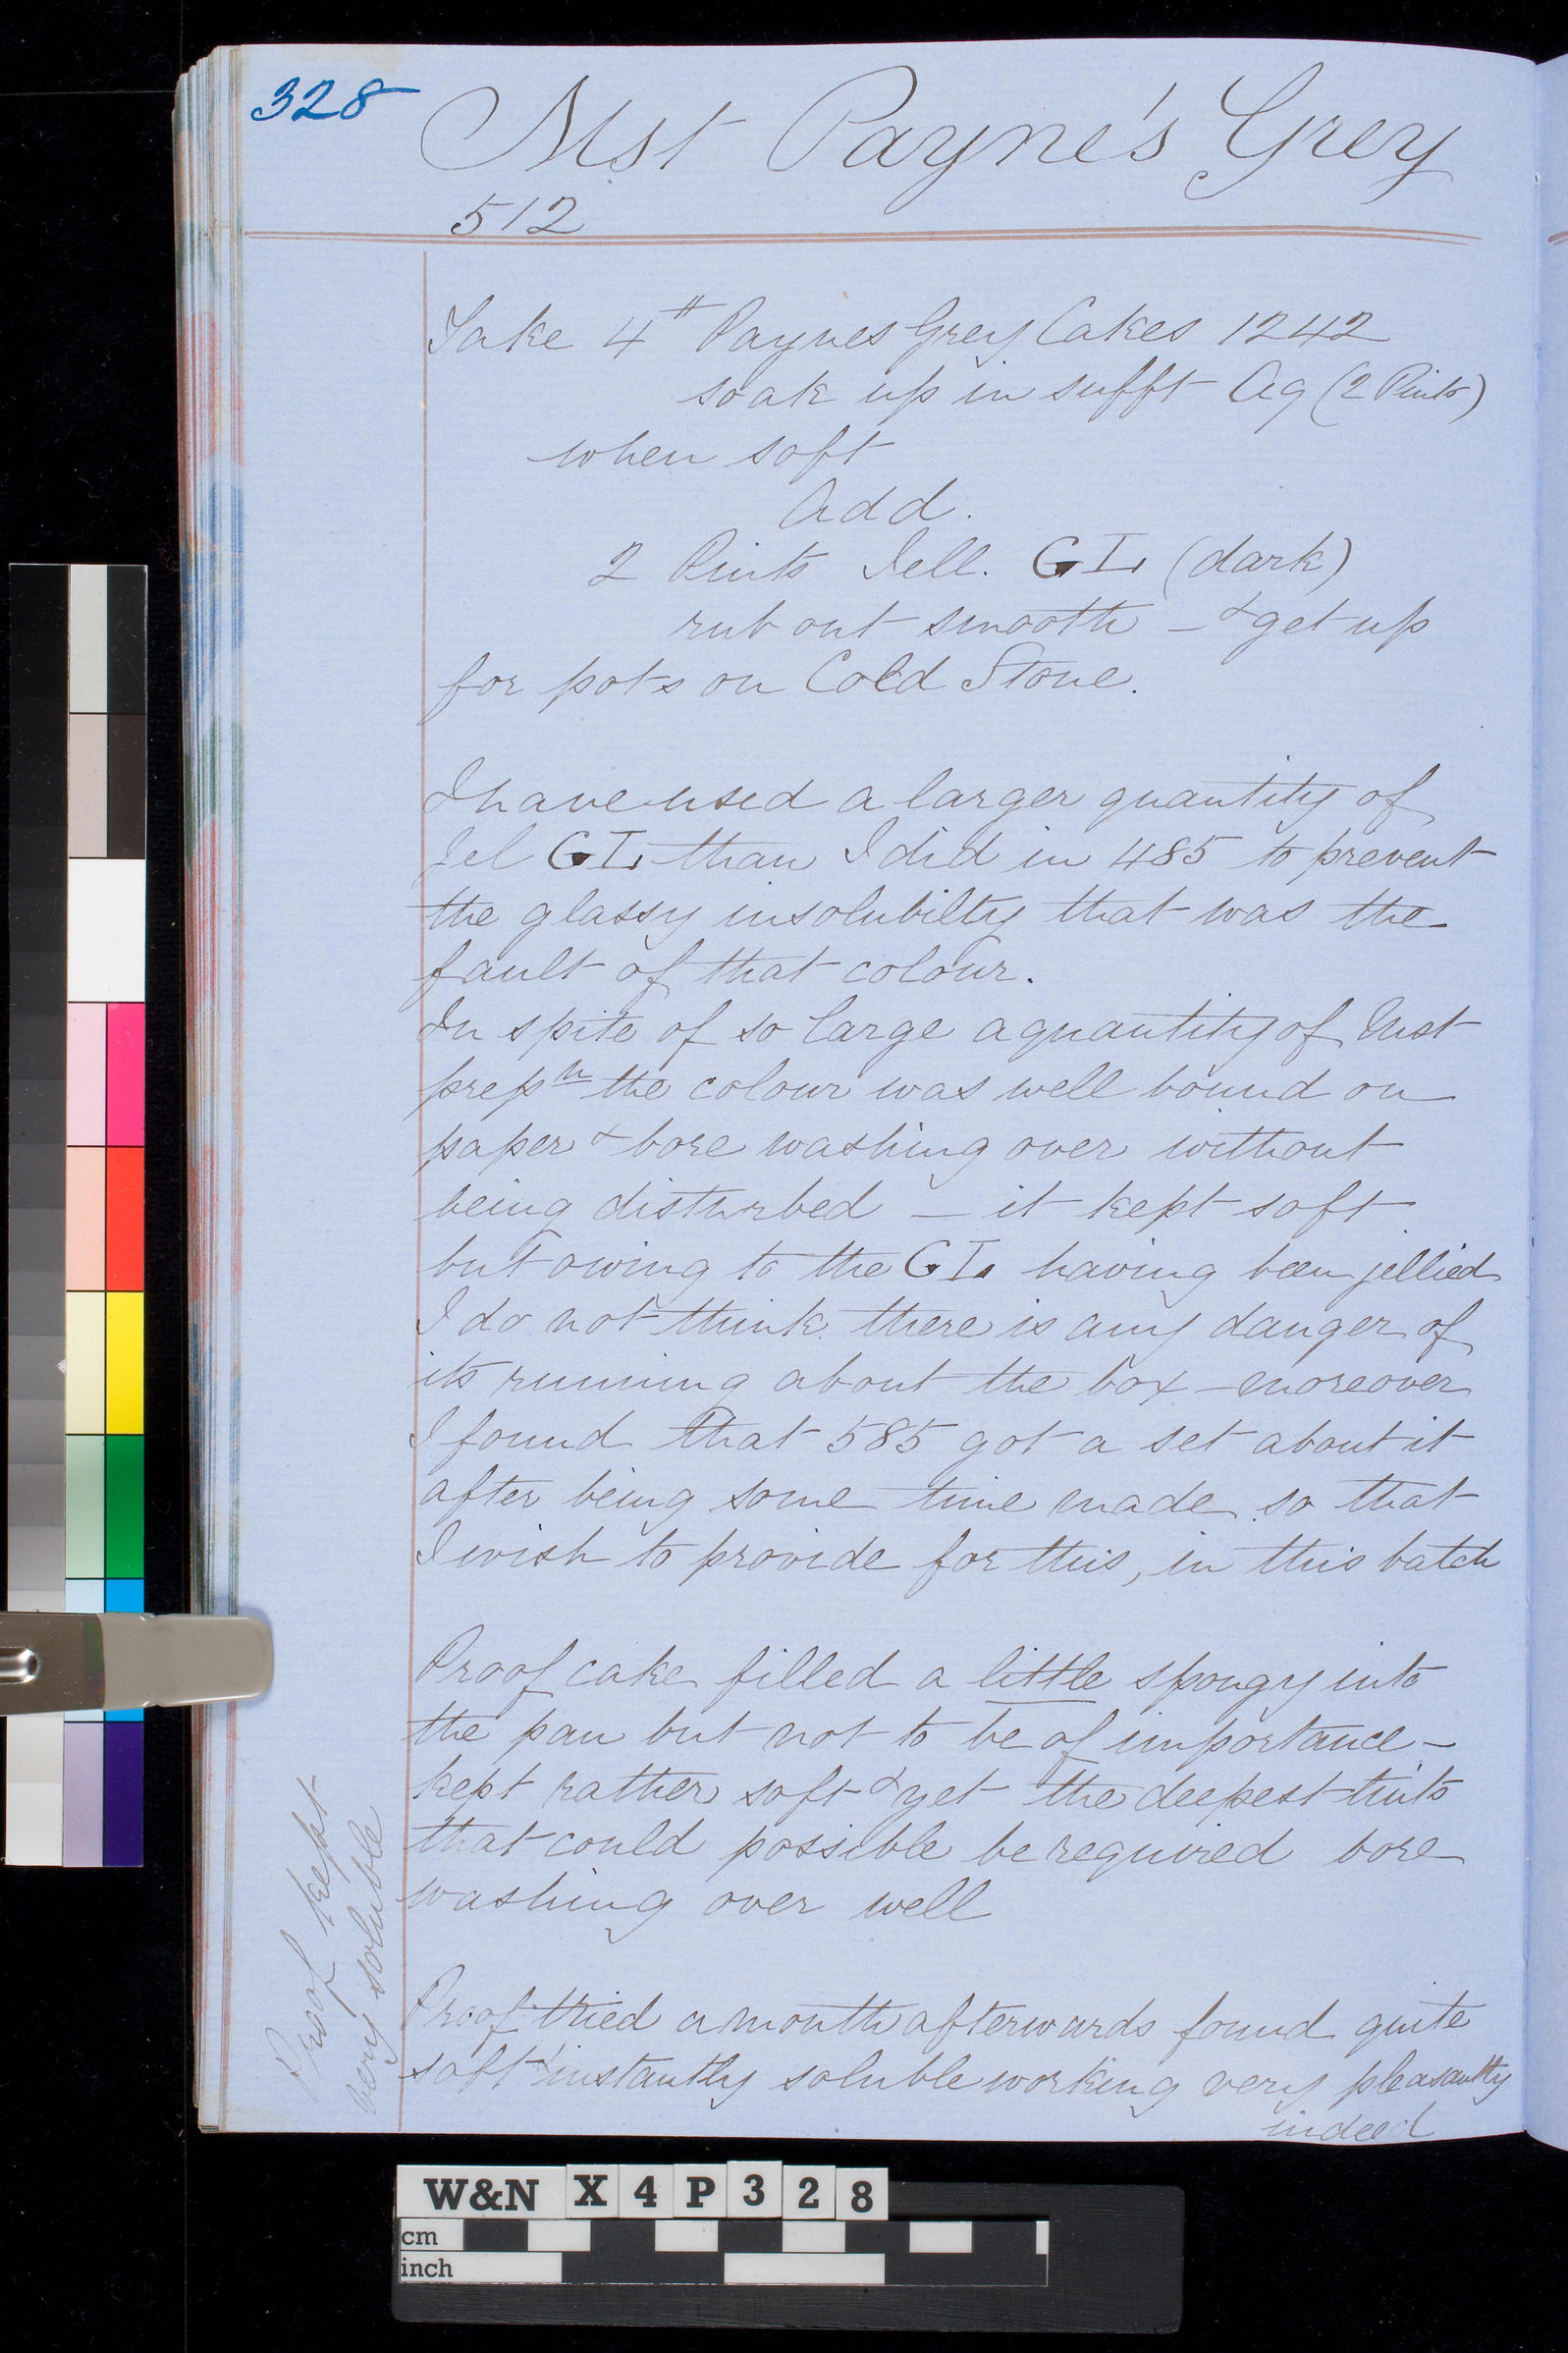 328
Mst Payne's Grey
512
Take 4 # Paynes Grey Cakes 1242
soak up in sufft Aq (2 Pints)
when soft
Add.
2 Pints Jell. GL (dark)
rub out smooth - & get up
for pots on Cold Stone.
I have used a larger quantity of
Jel GL than I did in 485 to prevent
the glassy insolubilty that was the
fault of that colour.
In spite of so large a quantity of Mst
prepn the colour was well bound on
paper & bore washing over without
being disturbed - it kept soft
but owing to the GL having been jellied
I do not think there is any danger of
its running about the box - moreover
I found that 585 got a set about it
after being some time made so that
I wish to provide for this, in this batch
Proof cake filled a little spongy into
the pan but not to be of importance -
kept rather soft & yet the deepest tints
that could possible be required bore
washing over well
Proof kept
very soluble
Proof tried a month afterwards found quite
soft & instantly soluble working very pleasantly
indeed
W&N X 4 P 3 2 8
cm
inch